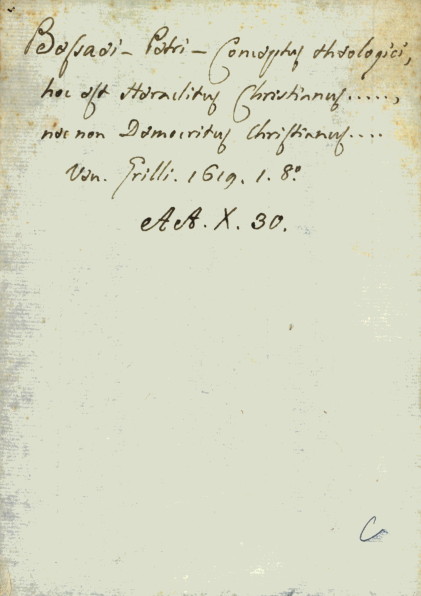 Bessaei - Petri - Conceptus theologici,
hoc est Heraclitus Christianus.....,
nec non Democritus Christianus....
Ven. Grilli. 1619. 1. 8º
AA. X. 30.
C